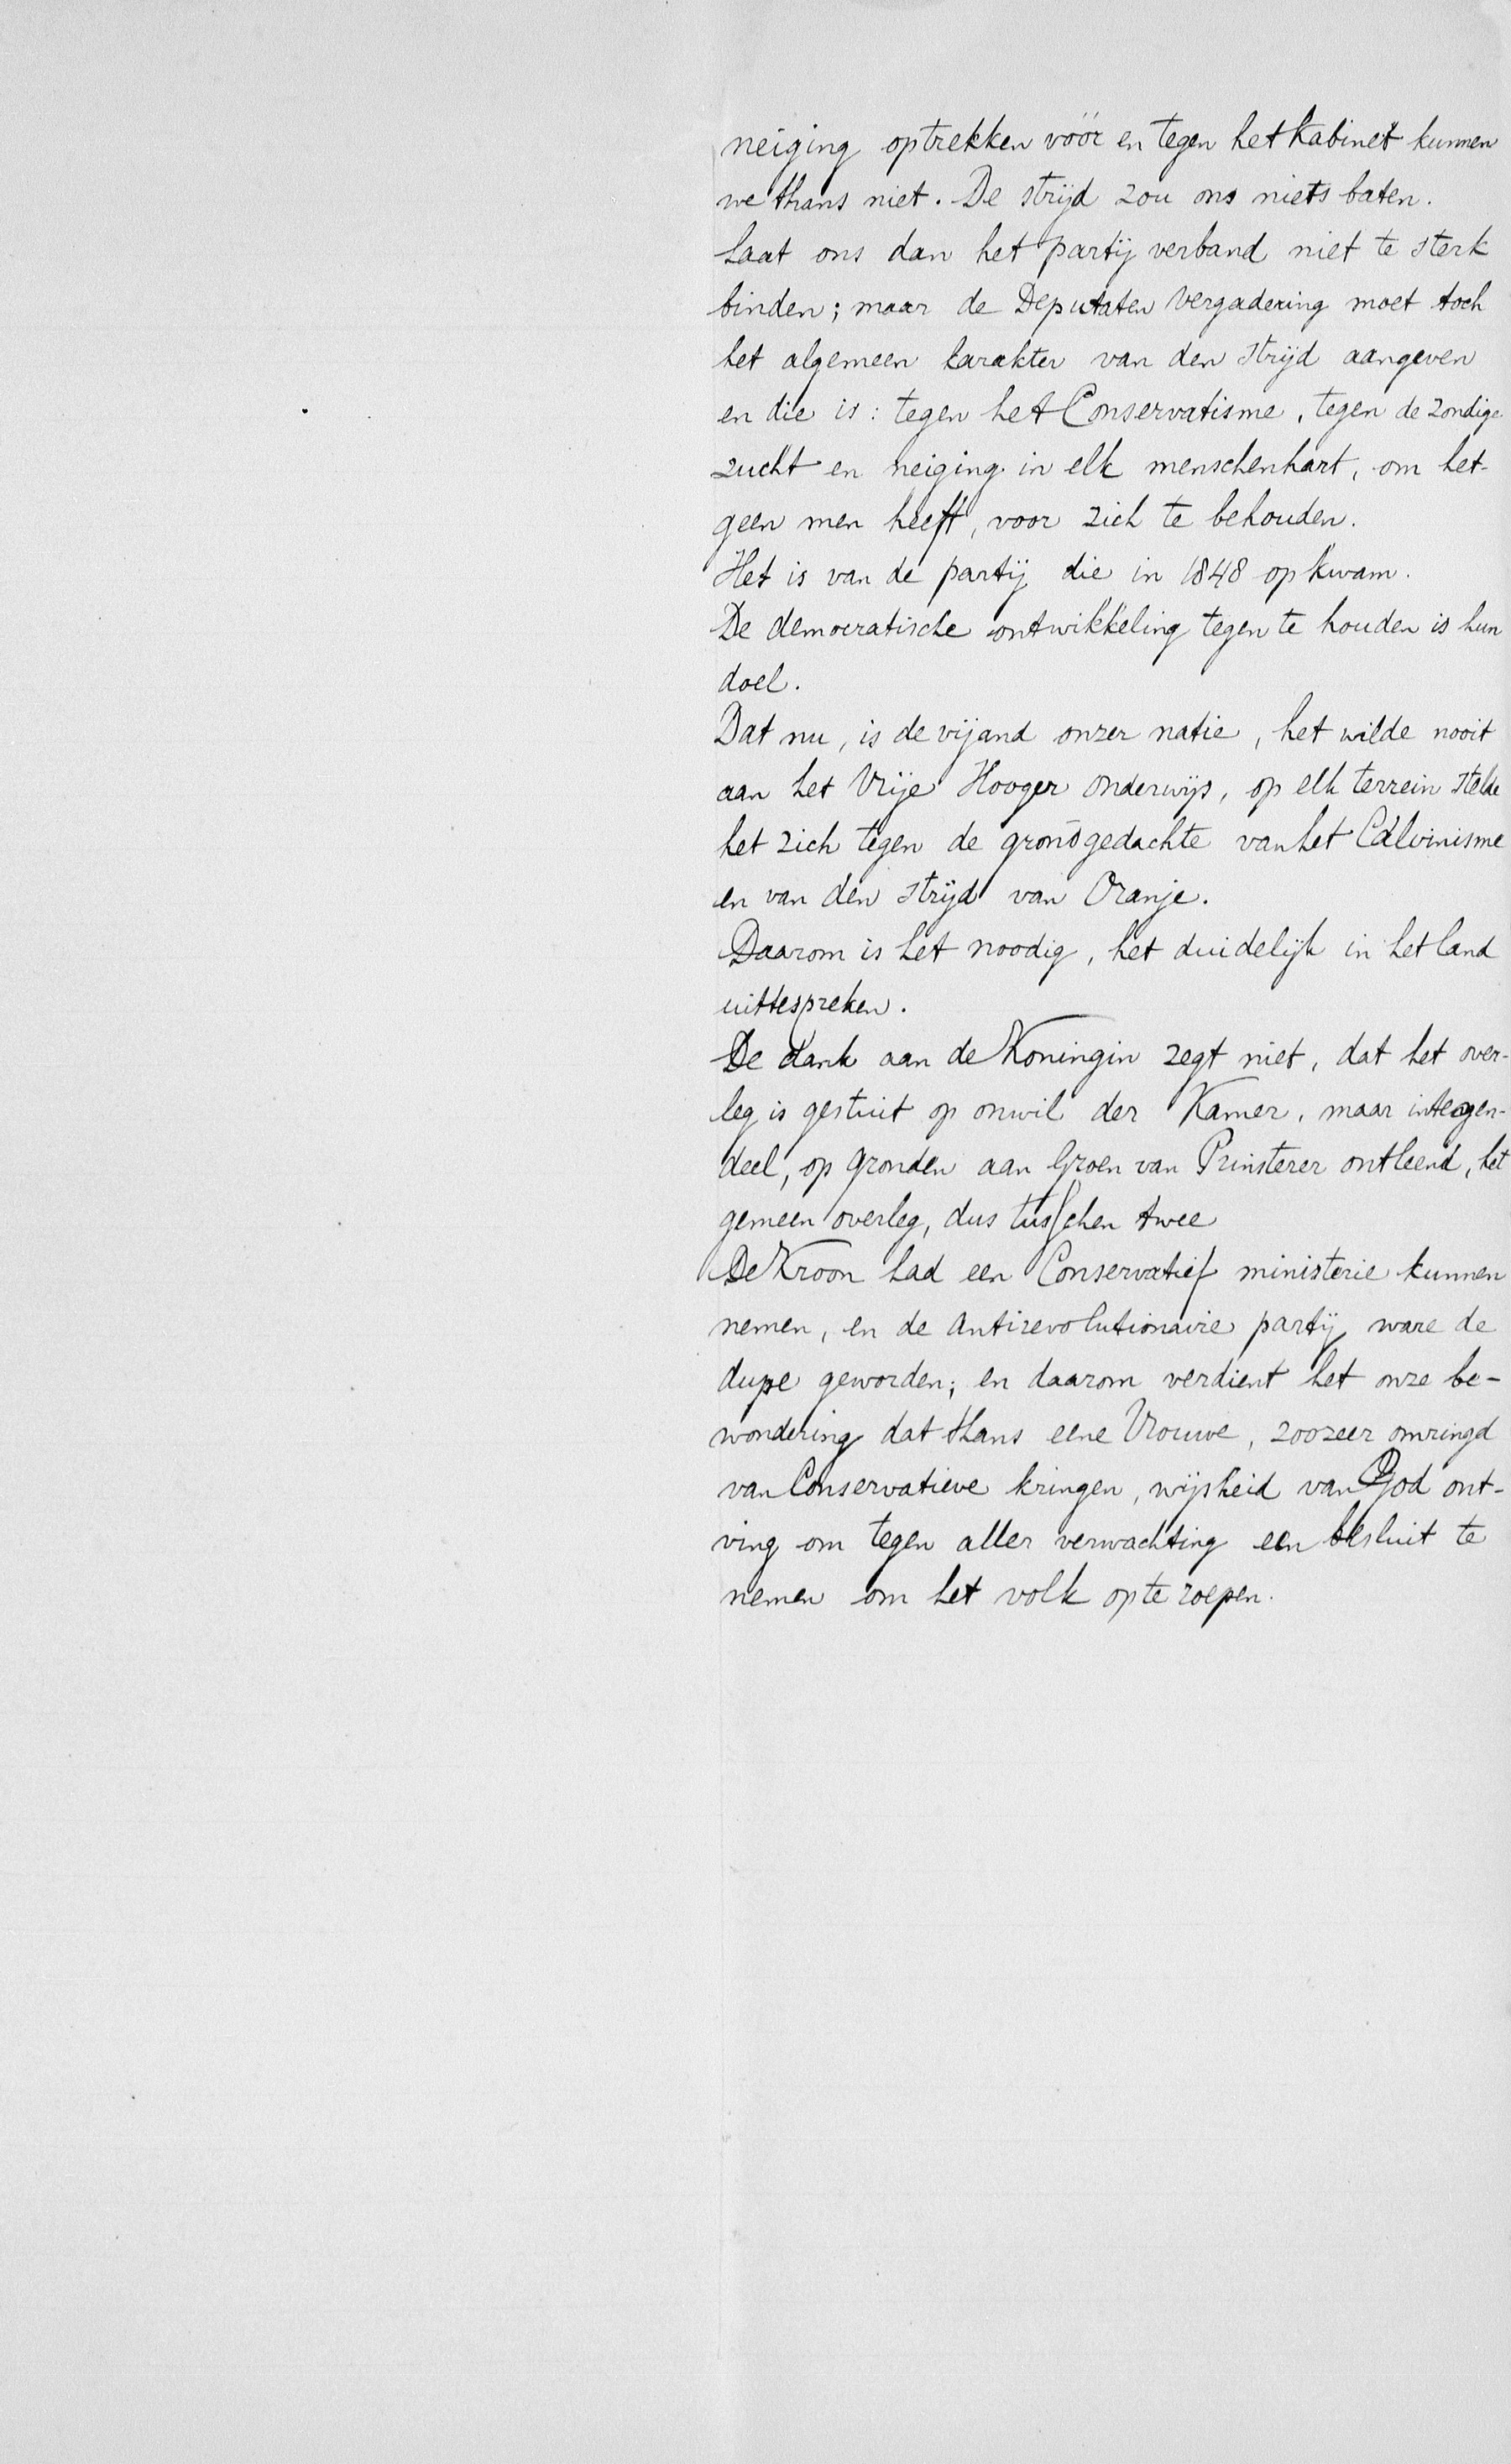 neiging optrekken vóór en tegen het Kabinet kunnen
we thans niet. De strijd zou ons niets baten.
Laat ons dan het partij verband niet te sterk
binden; maar de Deputaten Vergadering moet toch
het algemeen karakter van den strijd aangeven
en die is: tegen het Conservatisme, tegen de zondige
zucht en neiging in elk menschenhart, om het-
geen men heeft, voor zich te behouden.
Het is van de partij die in 1848 op kwam.
De democratische ontwikkeling tegen te houden is hun
doel.
Dat nu, is de vijand onzer natie, het wilde nooit
aan het Vrije Hooger onderwijs, op elk terrein stelde
het zich tegen de grondgedachte van het Calvinisme
en van den strijd van Oranje.
Daarom is het noodig, het duidelijk in het land
uittespreken.
De dank aan de Koningin zegt niet, dat het over-
leg is gestuit op onwil der Kamer, maar integen-
deel, op gronden aan Groen van Prinsterer ontleend, het
gemeen overleg, dus tusschen twee
De Kroon had een Conservatief ministerie kunnen
nemen, en de Antirevolutionaire partij ware de
dupe geworden; en daarom verdient het onze be-
wondering dat thans eene Vrouwe, zoozeer omringd
van Conservatieve kringen, wijsheid van God ont-
ving om tegen aller verwachting een besluit te
nemen om het volk op te roepen.